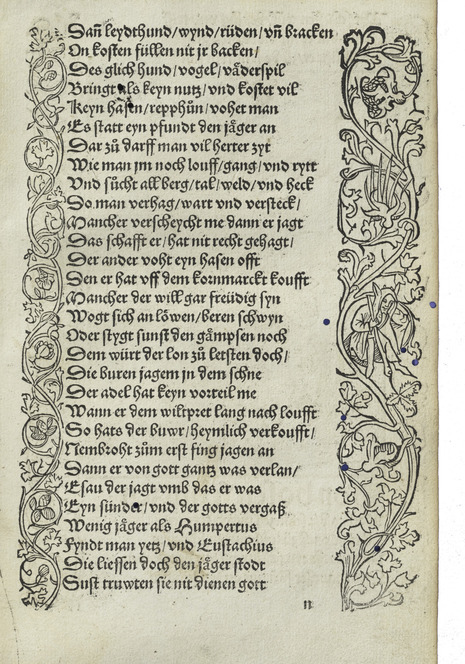 Dañ leydthund/wynd/rüden/vñ bracken
On kosten füllen nit jr backen/
Des glich hund/vogel/väderspil
Bringt als keyn nutz/vnd kostet vil
Keyn hasen/repphůn/vohet man
Es statt eyn pfundt den jäger an
Dar zů darff man vil herter zyt
Wie man jm noch louff/gang/vnd rytt
Vnd sůcht all berg/tal/weld/vnd heck
Do man verhag/wart vnd versteck/
Mancher verscheycht me dann er jagt
Das schafft er/hat nit recht gehagt/
Der ander voht eyn hasen offt
Den er hat vff dem kornmarckt koufft
Mancher der will gar freüdig syn
Wogt sich an löwen/beren schwyn
Oder stygt sunst den gämpsen noch
Dem würt der lon zů letsten doch/
Die buren jagem jn dem schne
Der adel hat keyn vorteil me
Wann er dem wiltpret lang nach loufft
So hats der buwr/heymlich verkoufft/
Nembroht zům erst fing jagen an
Dann er von gott gantz was verlan/
Esau der jagt vmb das er was
Eyn sünder/vnd der gotts vergaß
Wenig jäger als Humpertus
Fyndt man yetz/vnd Eustachius
Die liessen doch den jäger stodt
Sust truwten sie nit dienen gott